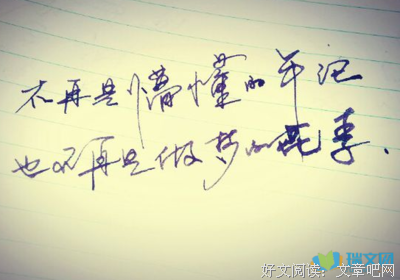 不再是懵懂的年纪
也不再是做梦的花季.
瑞文网
好文阅读：文章吧网